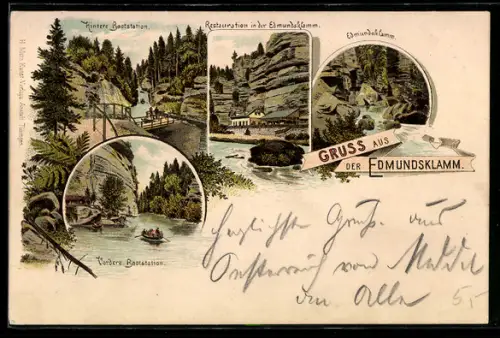 Hintere Bootstation.
Restauration in der Edmundsklamm.
Edmundsklamm.
GRUSS AUS
DER EDMUNDSKLAMM.
Vordere Bootstation.
Herzlichste Grüße aus
Oesterreich von
an Alle
5,-